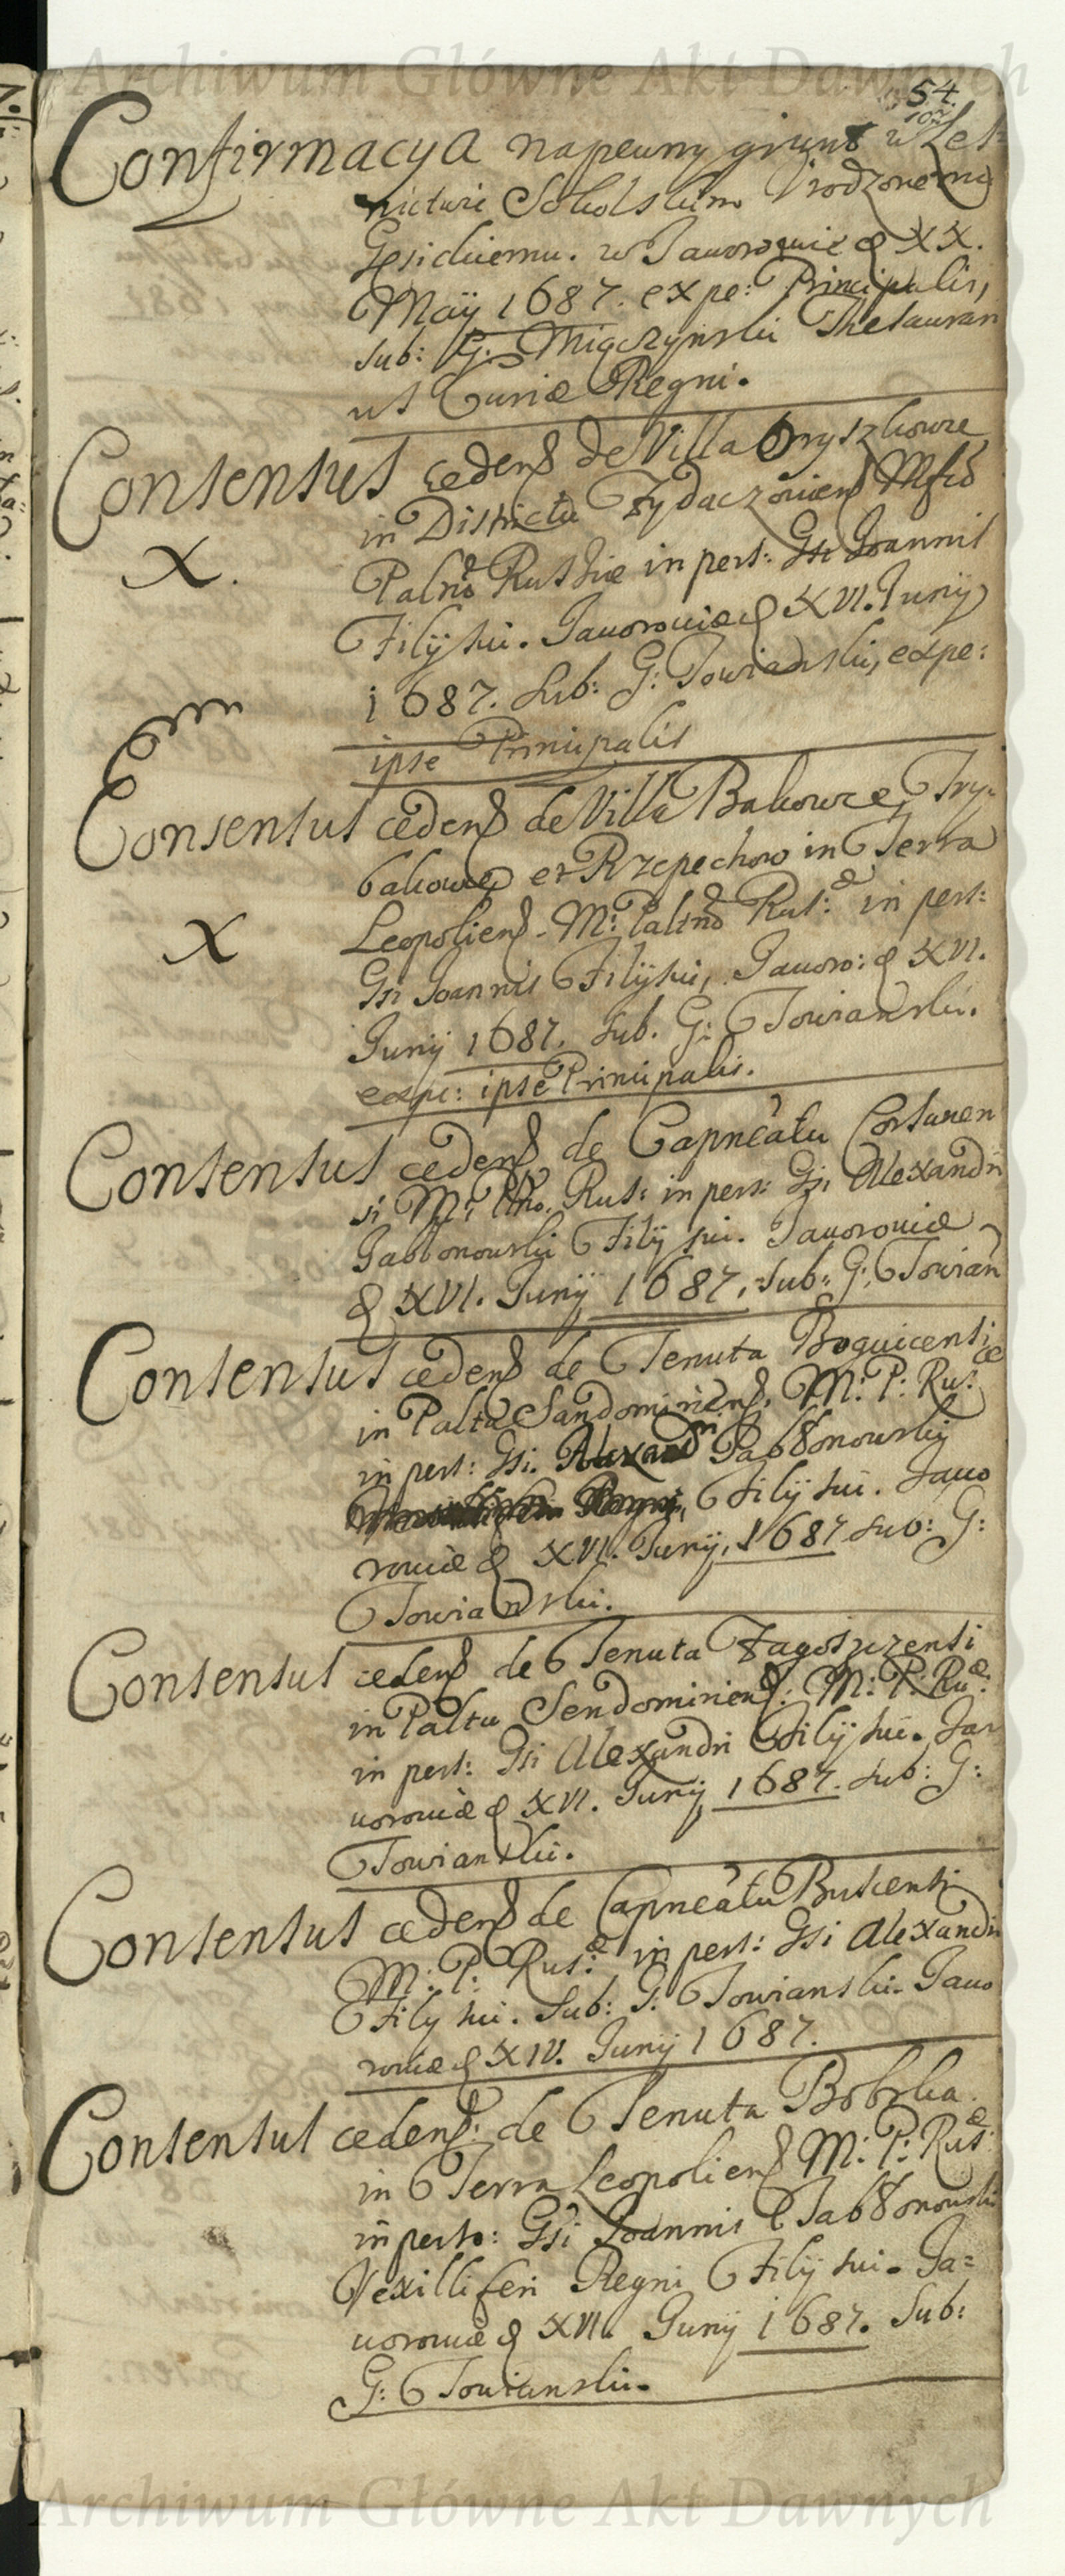 Archiwum Główne Akt Dawnych
54.
107
Confirmacya na pewny grunt w Leś
nictwie Sokolskim Urodzonemu
w Jaworowie d XX.
Maÿ 1687. expe: Principalis,
sub: G: Miączynski Thesaurari
us Curiæ Regni.
Consensus cedend de Villa Oryszkowce
in Districtu Zydaczowien Mfco
Palno Russiæ in pers: Gsi Joannis
Filÿ sui. Jaworowiæ d XVI. Junÿ
1687. Sub: G: Towianski, expe:
ipse Principalis
Consensus cedend de Villa Bakowce, Try,
bakowce et Rzepechow in Terra
Leopoliens. M: Paltno Rus: æ in pers:
Gsi Joannis Filÿ sui, Jaworo: d XVI.
Junÿ 1687. Sub. G: Towianski.
expe: ipse Principalis.
Consensus cedend de Capneatu Corsunen
si M: Ptno. Rus: in pers: Gsi Alexandri
Jabłonowski Filÿ sui. Jaworowiæ
d XVI. Junÿ 1687, Sub: G: Towian
Consensus cedend de Tenuta Boguicensi
in Paltu Sandomiriens, M: P: Rus: æ
in pers: Gsi. Alexandri Jabłonowsky
Regni, Filÿ sui. Jawo
rowiæ d XVI. Junÿ, 1687 Sub: G:
Towianski.
Consensus cedend de Tenuta Zagoszczensi
in Paltu Sendomiriens: M: P: Ru: æ
in pers: Gsi Alexandri Filÿ sui. Ja
worowiæ d XVI. Junÿ, 1687. Sub: G:
Towianski.
Consensus cedend de Capneatu Buscensi
M: P: Rus: æ in pers: Gsi Alexandri
Filÿ sui. Sub: G: Towianski. Jawo
rowiæ d XIV. Junÿ 1687.
Consensus cedend: de Tenuta Bobrka
in Terra Leopoliens M: P: Rus: æ
in perso: Gsi Joannis Jabłonowski
Vexilliferi Regni Filÿ sui. Ja=
worowiæ d XVI. Junÿ 1687. Sub:
G: Towianski.
Archiwum Główne Akt Dawnych